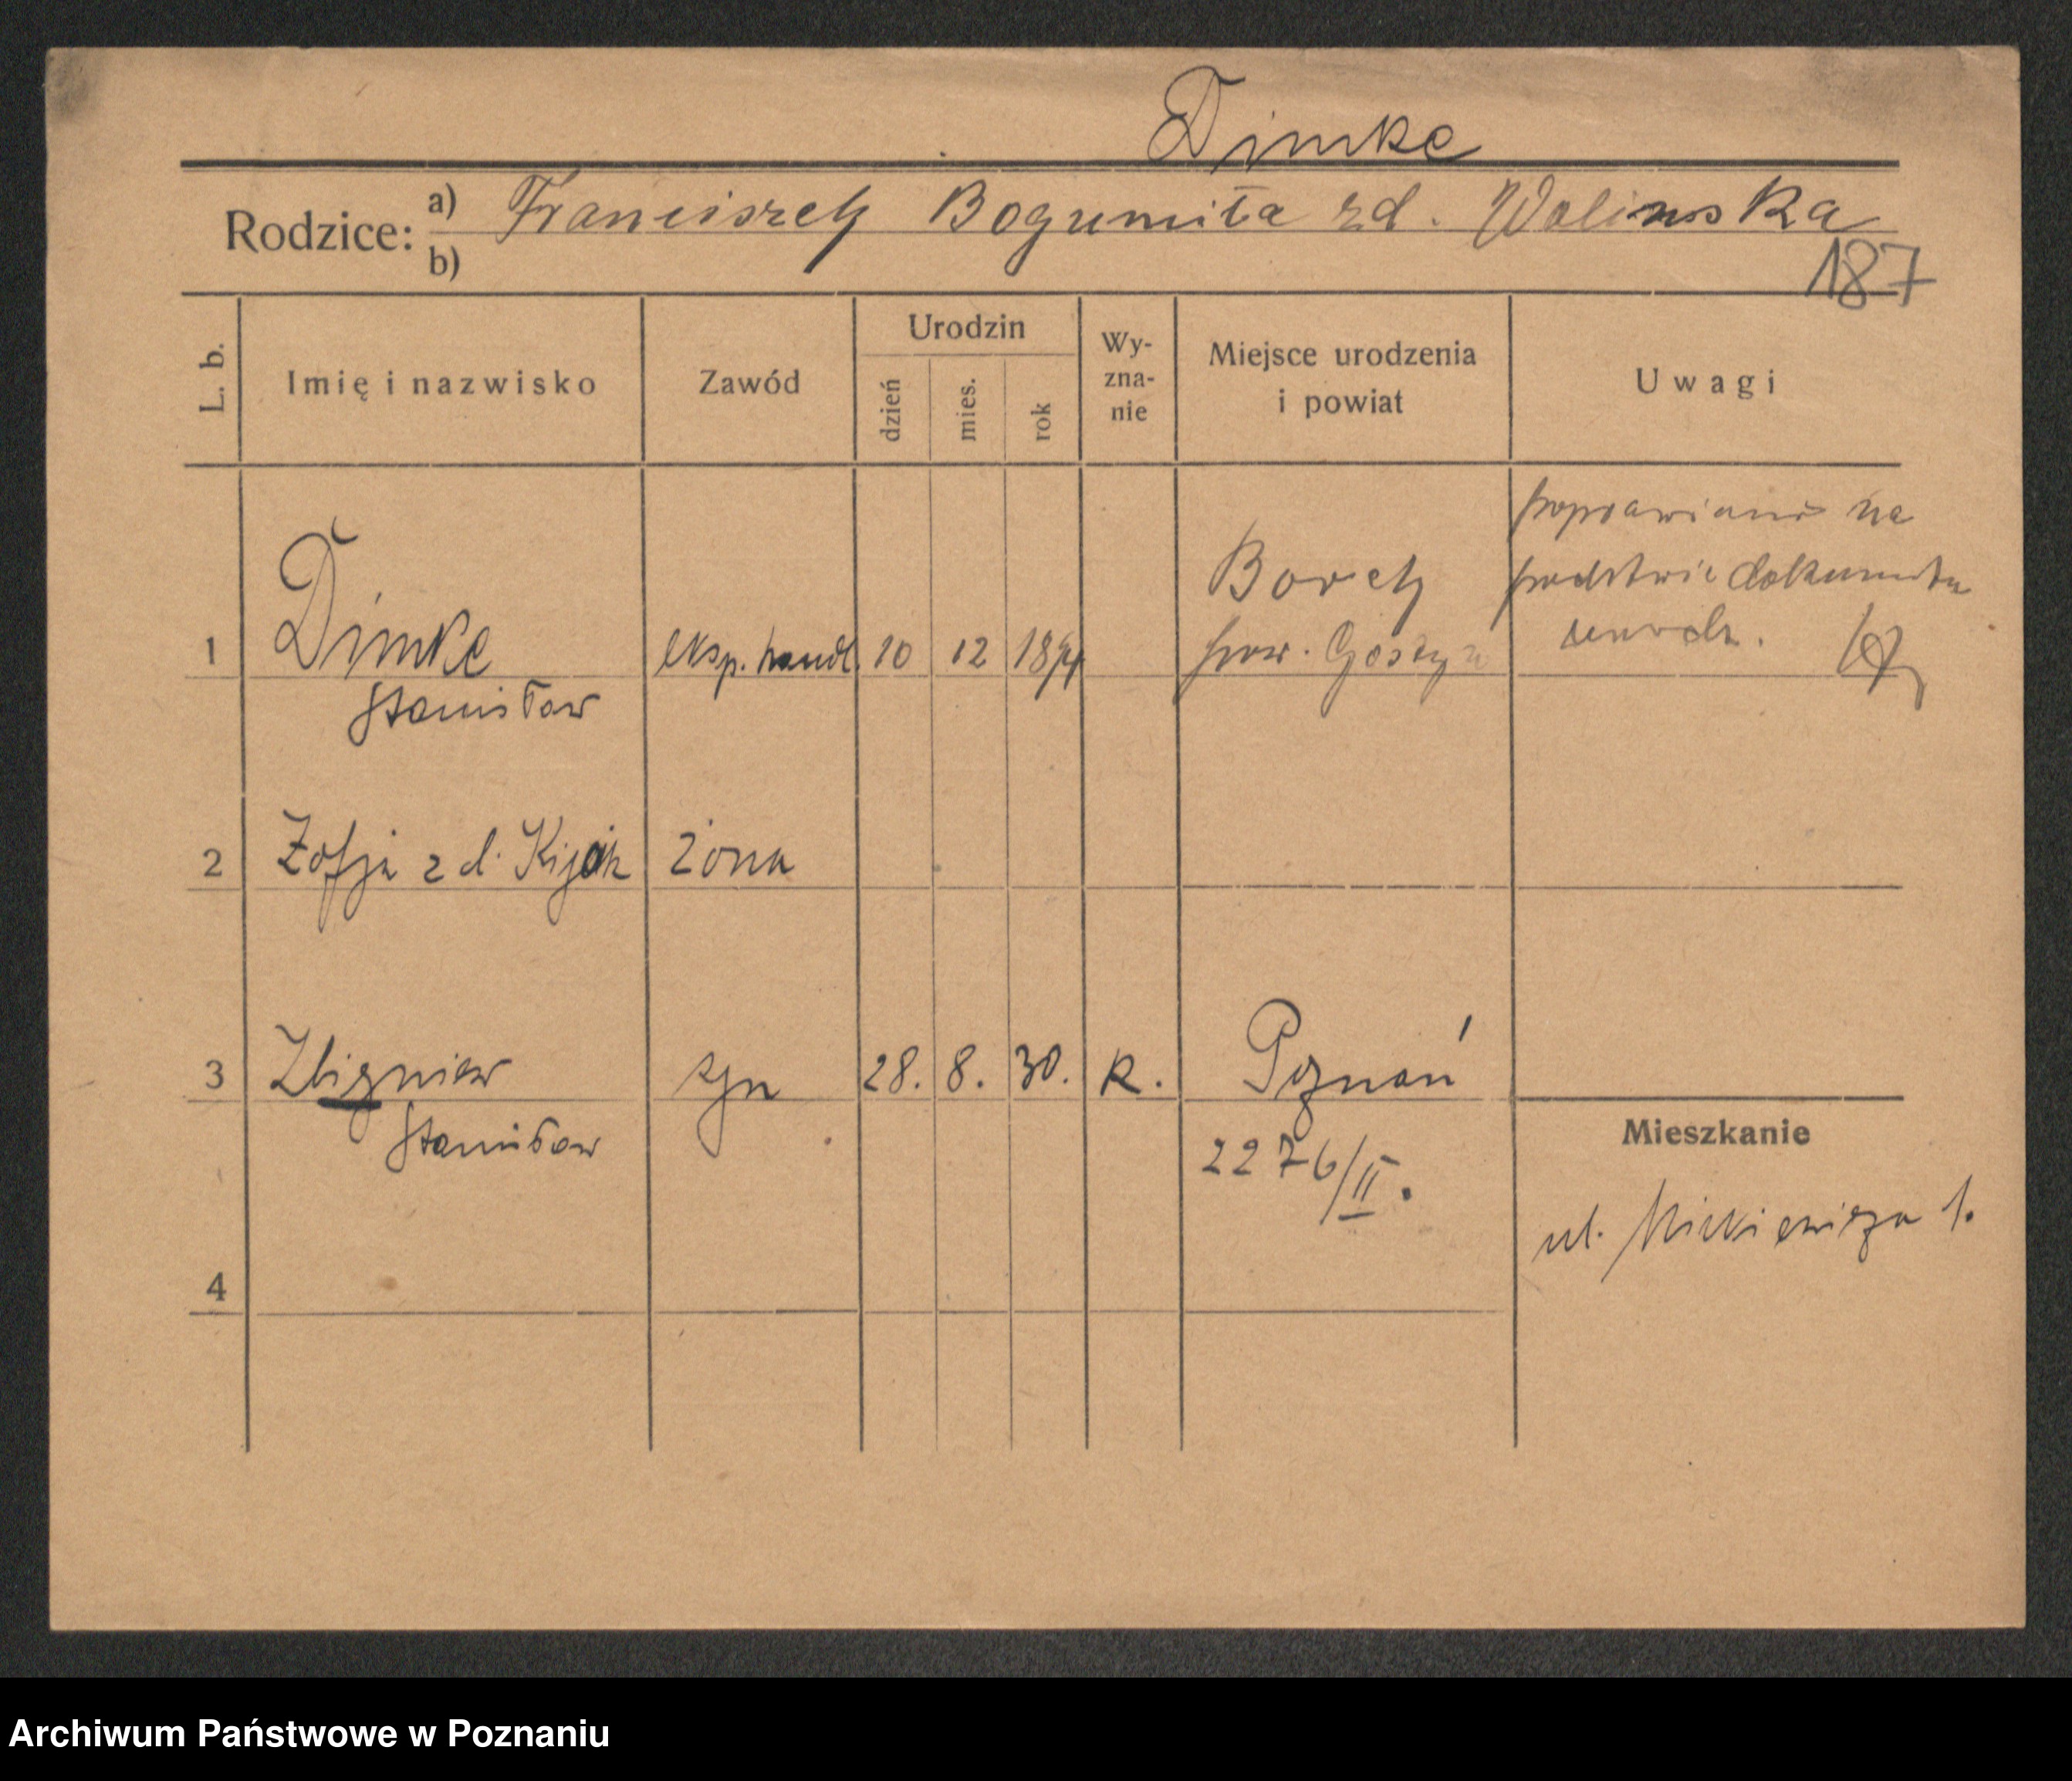 Dimke
Rodzice: a) Franciszek Bogumiła z d. Wolinska
b)
187
L. b.
Imię i nazwisko
Zawód
Urodzin
dzień
mies.
rok
Wy-
zna-
nie
Miejsce urodzenia
i powiat
Uwagi
poprawiono na
podstwie dokumentu
1 Dimke eksp. handl. 10 12 Borek
pow. Gostyń
Stanisław
2 Zofja z d. Kijak żona
3 Zbigniew syn 28. 8. 30. k. Poznań
Stanisław
2276/II.
Mieszkanie
ul. Mickiewicza 1.
4
Archiwum Państwowe w Poznaniu